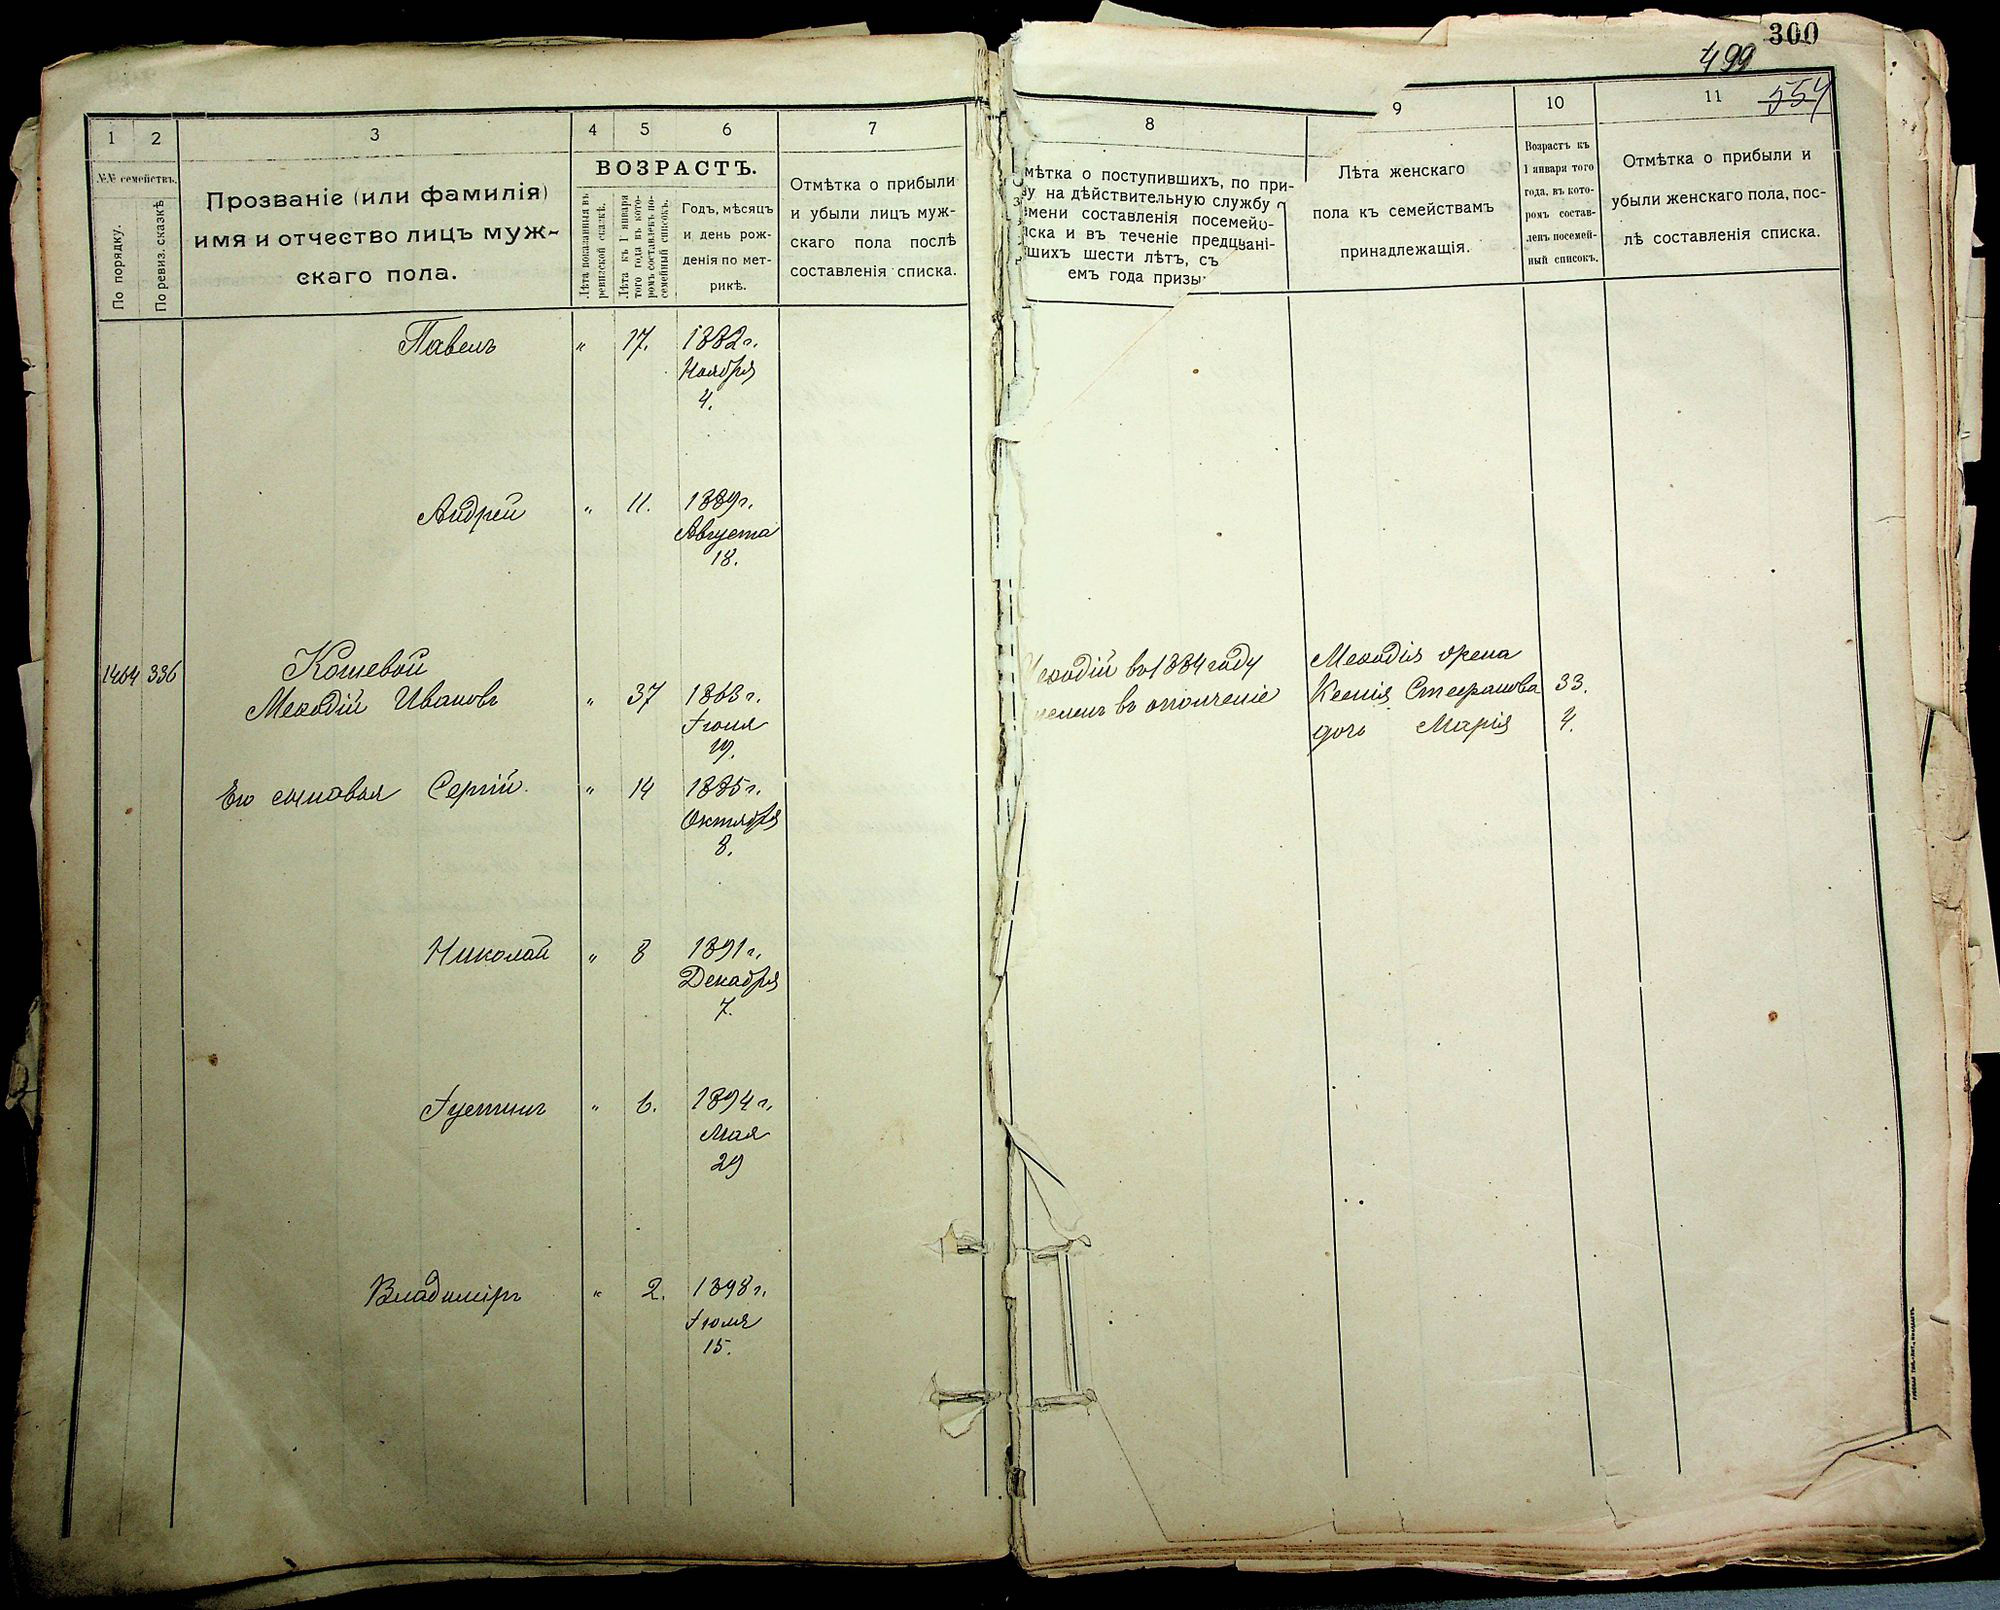 300
499
554
1
2
3
4
5
6
7
№№ семействъ.
По порядку.
По ревиз. сказкѣ
Прозваніе (или фамилія)
имя и отчество лицъ муж-
скаго пола.
ВОЗРАСТЪ.
Лѣта показанныя въ
ревизской сказкѣ.
Лѣта къ 1 января
того года въ кото-
ромъ составленъ по-
семейный списокъ.
Годъ, мѣсяцъ
и день рож-
денія по мет-
рикѣ.
Отмѣтка о прибыли
и убыли лицъ муж-
скаго пола послѣ
составленія списка.
Павелъ " 17. 1882 г.
Ноября
4.
Андрей " 11. 1889 г.
Августа
18.
1464 336 Кошевой
Меѳодій Ивановъ " 37 1863 г.
Іюня
19.
Его сыновья Сергій. " 14 1885 г.
Октября
8.
Николай " 8 1891 г.
Декабря
7.
Іустинъ " 6. 1894 г.
Мая
29
Владиміръ " 2. 1898 г.
Іюля
15.
8
9
10
11
мѣтка о поступившихъ, по при-
ву на дѣйствительную службу с
емени составленія посемейн-
иска и въ теченіе предшуві-
шихъ шести лѣтъ, съ
емъ года призы
Лѣта женскаго
пола къ семействамъ
принадлежащія.
Возрастъ къ
1 января того
года, въ кото-
ромъ состав-
ленъ посемей-
ный списокъ.
Отмѣтка о прибыли и
убыли женскаго пола, пос-
лѣ составленія списка.
Меѳодій въ 1884 году
численъ въ ополченіе
Меѳодія жена
Ксенія Стефанова 33.
дочь Марія 4.